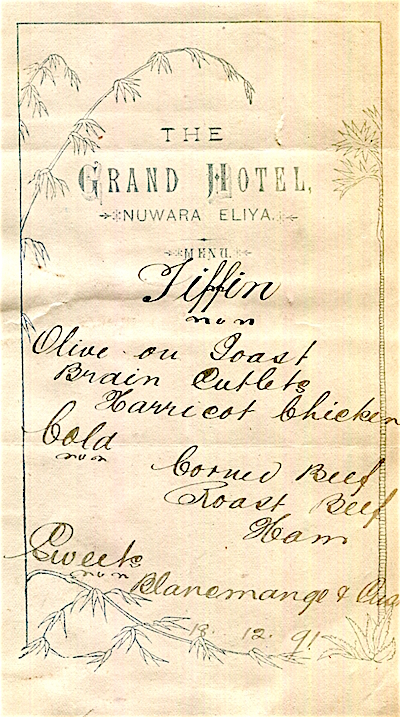 THE
GRAND HOTEL,
NUWARA ELIYA.
MENU.
Tiffin
Olive on Toast
Brain Cutlets
Harricot Chicken
Cold
Corned Beef
Roast Beef
Ham
Sweets
Blancmange &
18. 12. 91